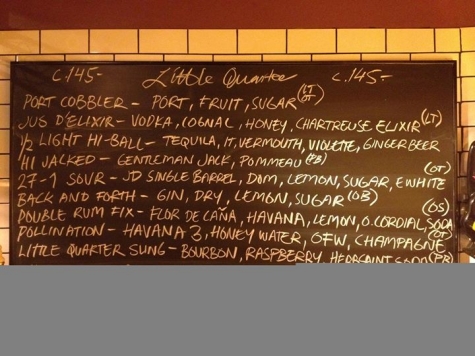 C.145- Little Quarter C.145-
PORT COBBLER - PORT, FRUIT, SUGAR (LT OT)
JUS D'ELIXIR - VODKA, COGNAC, HONEY, CHARTREUSE ELIXIR (LT)
1/2 LIGHT HI-BALL - TEQUILA, IT. VERMOUTH, VIOLETTE, GINGER BEER
HI JACKED - GENTLEMAN JACK, POMMEAU (PB)
27-1 SOUR - JD SINGLE BARREL, DOM, LEMON, SUGAR, E WHITE (OT)
BACK AND FORTH - GIN, DRY, LEMON, SUGAR (OB)
DOUBLE RUM FIX - FLOR DE CAÑA, HAVANA, LEMON, O. CORDIAL, SODA (OS)
POLLINATION - HAVANA 3, HONEY WATER, OFW, CHAMPAGNE (OT)
LITTLE QUARTER SLING - BOURBON, RASPBERRY, HERBSAINT, SODA (PB)